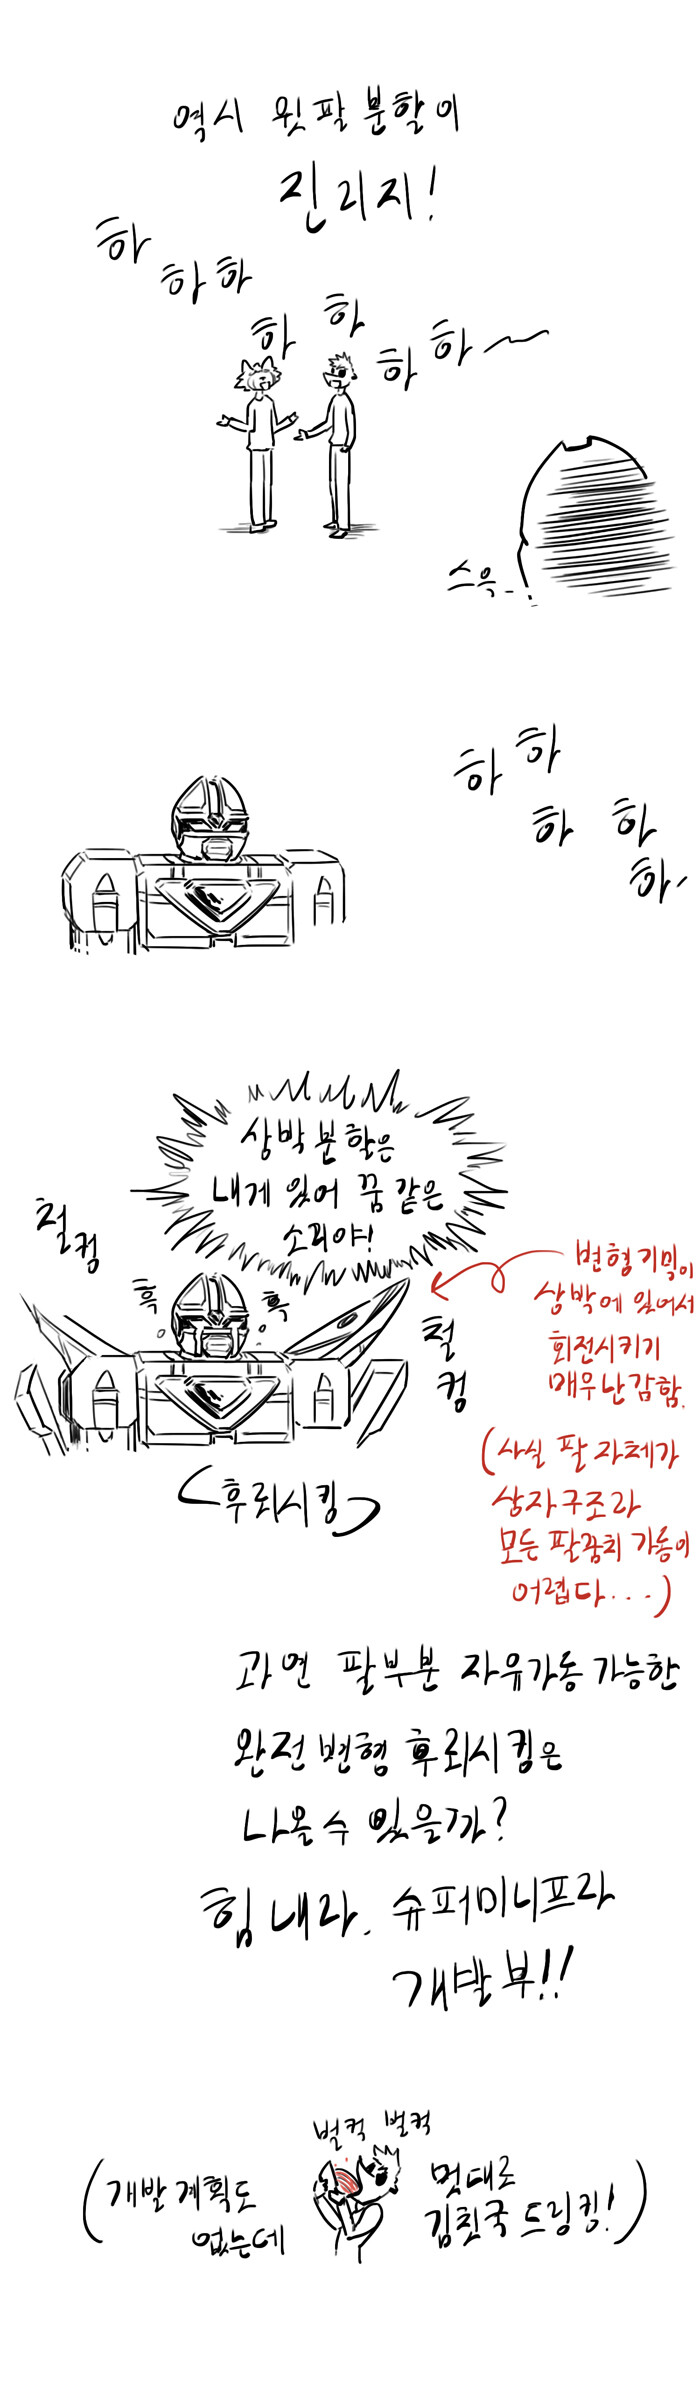 역시 윗팔 분할이
진리지!
하
하하
하 하
하 하~
스윽..
하 하
하 하
하~
상박분할은
내게 있어 꿈 같은
소리야!
철컹
흑 흑
철컹
변형기믹이
상박에 있어서
회전시키기
매우 난감함.
(사실 팔 자체가
상자구조라
모든 팔꿈치 가동이
어렵다...)
<후뢰시킹>
과연 팔부분 자유가동 가능한
완전변형 후뢰시킹은
나올 수 있을까?
힘내라, 슈퍼미니프라
개발부!!
벌컥 벌컥
(개발 계획도
없는데
멋대로
김칫국 드링킹!)